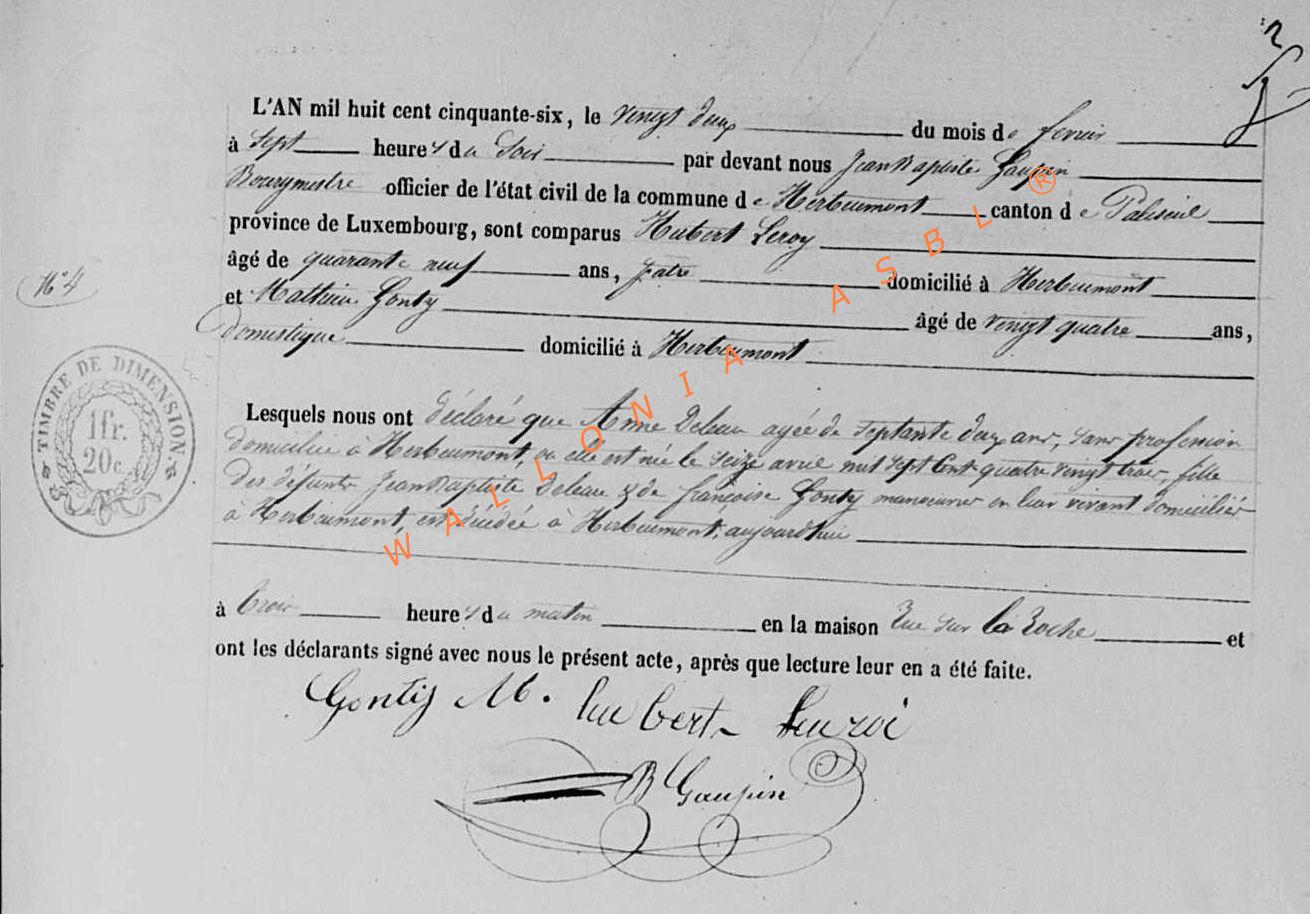 L'AN mil huit cent cinquante-six, le vingt deux du mois de fevrier
à Sept heures du Soir par devant nous Jean Baptiste Gaupin
Bourgmestre officier de l'état civil de la commune de Herbeumont canton de Paliseul
province de Luxembourg, sont comparus Hubert Leroy
âgé de quarante neuf ans, patre domicilié à Herbeumont
et Mathieu Gonty âgé de vingt quatre ans,
domestique domicilié à Herbeumont
N° 4
TIMBRE DE DIMENSION
1fr.
20c.
Lesquels nous ont déclaré que Anne Deleau agée de septante deux ans, sans profession
domiciliée à Herbeumont, où elle est née le seize avril mil sept Cent quatre vingt trois, fille
des défunts Jean Baptiste Deleau & de françoise Gonty manouvrier en leur vivant domiciliés
à Herbeumont, est décédée à Herbeumont, aujourd'hui
à trois heures du matin en la maison rue sur la roche et
ont les déclarants signé avec nous le présent acte, après que lecture leur en a été faite.
Gontij M. hubert Leuroi
B Gaupin
WALLONIA ASBL ®